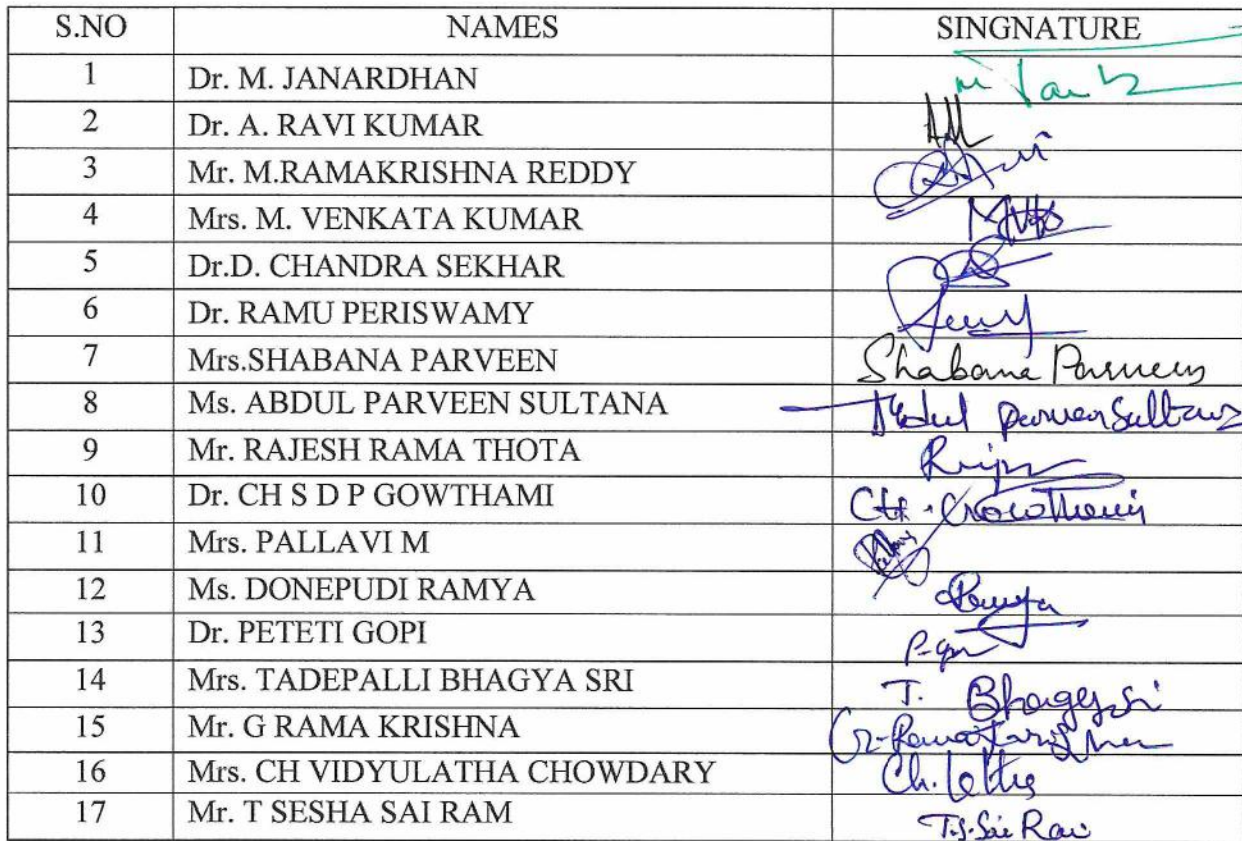 S.NO NAMES SINGNATURE
1 Dr. M. JANARDHAN
2 Dr. A. RAVI KUMAR
3 Mr. M.RAMAKRISHNA REDDY
4 Mrs. M. VENKATA KUMAR
5 Dr.D. CHANDRA SEKHAR
6 Dr. RAMU PERISWAMY
7 Mrs.SHABANA PARVEEN Shabana Parveen
8 Ms. ABDUL PARVEEN SULTANA Abdul parveen Sultana
9 Mr. RAJESH RAMA THOTA
10 Dr. CH S D P GOWTHAMI CH. Gowthami
11 Mrs. PALLAVI M
12 Ms. DONEPUDI RAMYA Ramya
13 Dr. PETETI GOPI
14 Mrs. TADEPALLI BHAGYA SRI T. Bhagya sri
15 Mr. G RAMA KRISHNA G. Rama Krishna
16 Mrs. CH VIDYULATHA CHOWDARY Ch.
17 Mr. T SESHA SAI RAM T.S.Sai Ram